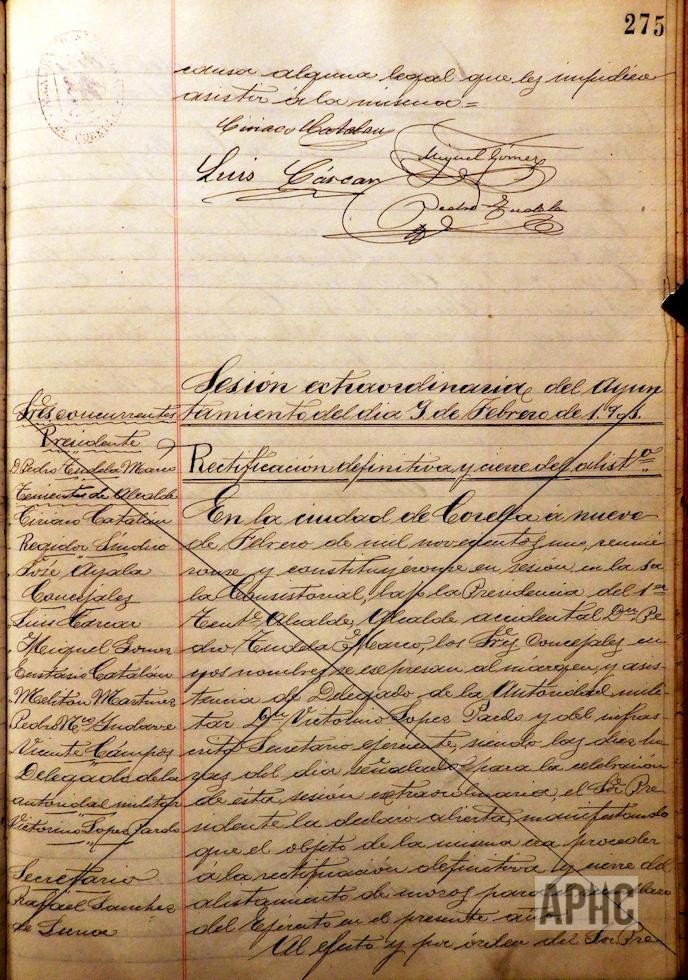 275
causa alguna legal que les impidiera
asistir á la misma=
Ciriaco Catalán
Miguel Gómez
Luis Cárcar
Pedro Tudela
Sesión extraordinaria del Ayun
tamiento del dia 9 de Febrero de 1.901.
Rectificación definitiva y cierre del alistto.
Sres concurrentes
Presidente
D. Pedro Tudela Marco
Tenientes de Alcalde
Ciriaco Catalán
Regidor Síndico
José Ayala
Concejales
Luis Cárcar
Miguel Gomez
Eustasio Catalán
Meliton Martinez
Pedro
Vicente Campos
Delegado de la
autoridad militar
Victorino Lopez Pardo
Secretario
Rafael Sanchez
de Luna
En la ciudad de Corella á nueve
de Febrero de mil novecientos uno, reunie
ronse y constituyeronse en sesión en la Sa
la Consistorial, bajo la Presidencia del 1er
Tente Alcalde, Alcalde accidental Don Pe
dro Tudela Marco, los Sres Concejales cu
yos nombres se expresan al margen, y asis
tencia de Delegado de la Autoridad mili
tar Don Victorino Lopez Pardo y del infras
crito Secretario ejerciente, siendo las diez ho
ras del dia señalado para la celebracion
de esta sesión extraordinaria, el Sor Pre
sidente la declaro abierta, manifestando
que el objeto de la misma era proceder
á la rectificación definitiva y cierre del
alistamiento de mozos para
del Ejército en el presente año
Al efecto y por órden del Sor Pre
APHC